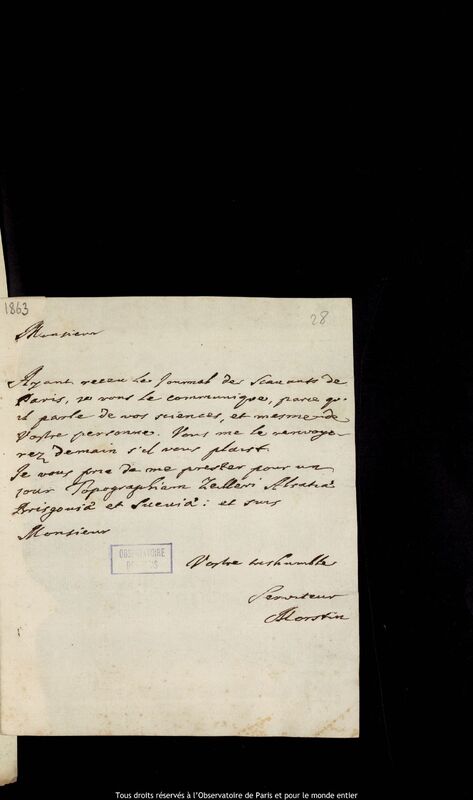 1863
28
Monsieur
Ayant receu le Journal des Scavants de
Paris, je vous le communique, parce qu'
il parle de vos sciences, et mesme de
Vostre personne. Vous me le renvoye-
rez demain s'il vous plaist.
Je vous prie de me prester pour un
jour Topographiam Zeilleri Alsatiæ
Brisgoviæ et Sueviæ: et suis
Monsieur
OBSERVATOIRE
DE PARIS
Vostre treshumble
Serviteur
Morstin
Tous droits réservés à l'Observatoire de Paris et pour le monde entier